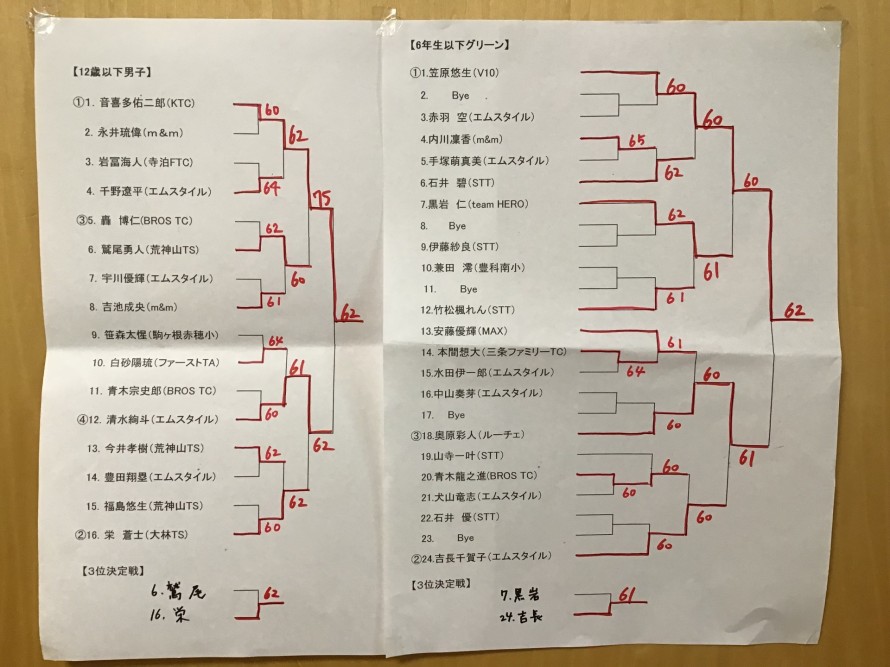 【12歳以下男子】
①1. 音喜多佑二郎(KTC)
60
2. 永井琉偉(m&m)
62
3. 岩冨海人(寺泊FTC)
4. 千野遼平(エムスタイル)
64
75
③5. 轟 博仁(BROS TC)
62
6. 鷲尾勇人(荒神山TS)
60
7. 宇川優輝(エムスタイル)
8. 吉池成央(m&m)
61
62
9. 笹森太惺(駒ヶ根赤穂小)
64
10. 白砂陽琉(ファーストTA)
61
11. 青木宗史郎(BROS TC)
④12. 清水絢斗(エムスタイル)
60
62
13. 今井孝樹(荒神山TS)
62
14. 豊田翔塁(エムスタイル)
62
15. 福島悠生(荒神山TS)
②16. 栄 蒼士(大林TS)
60
【3位決定戦】
6. 鷲尾
62
16. 栄
【6年生以下グリーン】
①1.笠原悠生(V10)
60
2. Bye
60
3.赤羽 空(エムスタイル)
4.内川凜香(m&m)
65
5.手塚萌真美(エムスタイル)
62
6.石井 碧(STT)
60
7.黒岩 仁(team HERO)
62
8. Bye
9.伊藤紗良(STT)
61
10.兼田 澪(豊科南小)
11. Bye
61
12.竹松楓れん(STT)
62
13.安藤優輝(MAX)
61
14. 本間想大(三条ファミリーTC)
64
15.水田伊一郎(エムスタイル)
60
16.中山奏芽(エムスタイル)
17. Bye
60
③18.奥原彩人(ルーチェ)
61
19.山寺一叶(STT)
60
20.青木龍之進(BROS TC)
60
21.犬山竜志(エムスタイル)
60
22.石井 優(STT)
23. Bye
60
②24.吉長千賀子(エムスタイル)
【3位決定戦】
7.黒岩
61
24.吉長